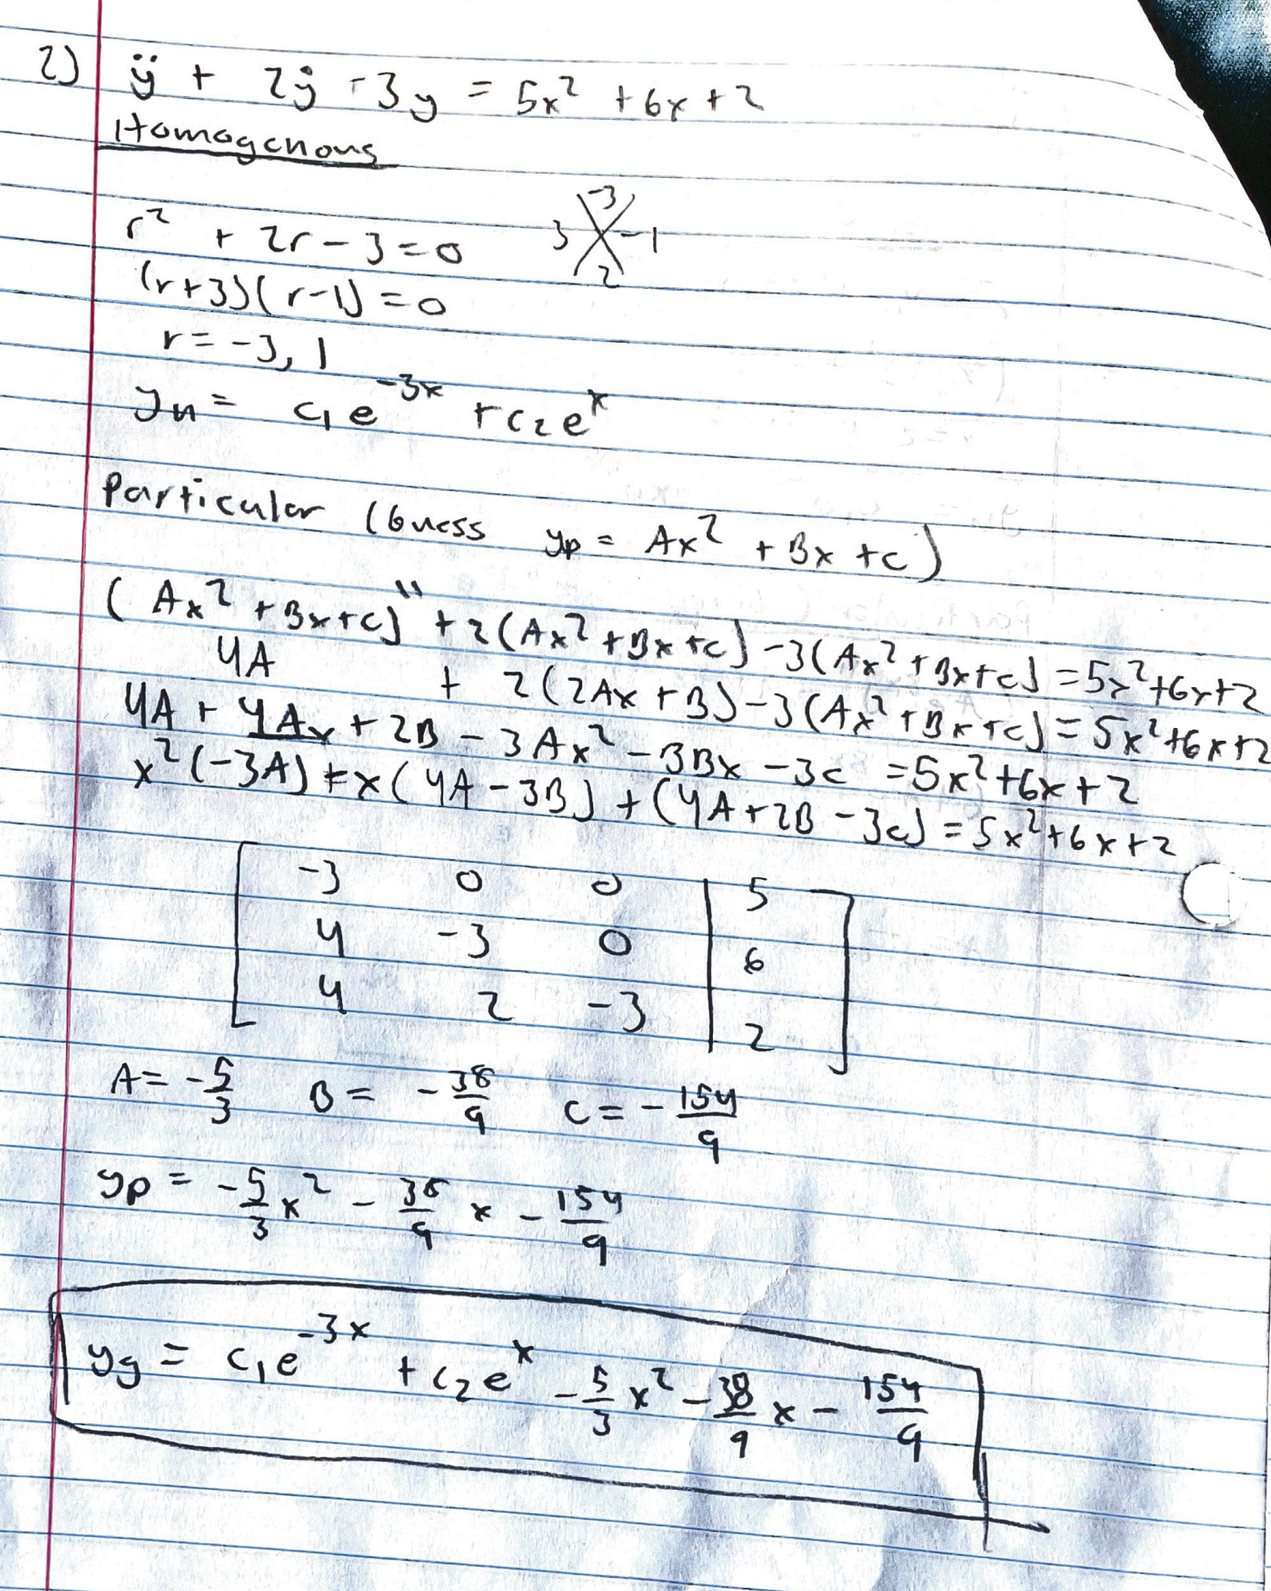 2) ÿ + 2ẏ - 3y = 5x² + 6x + 2
Homogenous
r² + 2r - 3 = 0
-3
3 -1
2
(r+3)(r-1) = 0
r = -3, 1
yh = c1e^-3x + c2e^x
Particular (Guess yp = Ax² + Bx + c)
(Ax² + Bx + c)'' + 2(Ax² + Bx + c) - 3(Ax² + Bx + c) = 5x² + 6x + 2
4A + 2(2Ax + B) - 3(Ax² + Bx + c) = 5x² + 6x + 2
4A + 4Ax + 2B - 3Ax² - 3Bx - 3c = 5x² + 6x + 2
x²(-3A) + x(4A - 3B) + (4A + 2B - 3c) = 5x² + 6x + 2
-3 0 0 5
4 -3 0 6
4 2 -3 2
A = -5/3 B = -38/9 c = -154/9
yp = -5/3 x² - 38/9 x - 154/9
yg = c1e^-3x + c2e^x - 5/3 x² - 38/9 x - 154/9